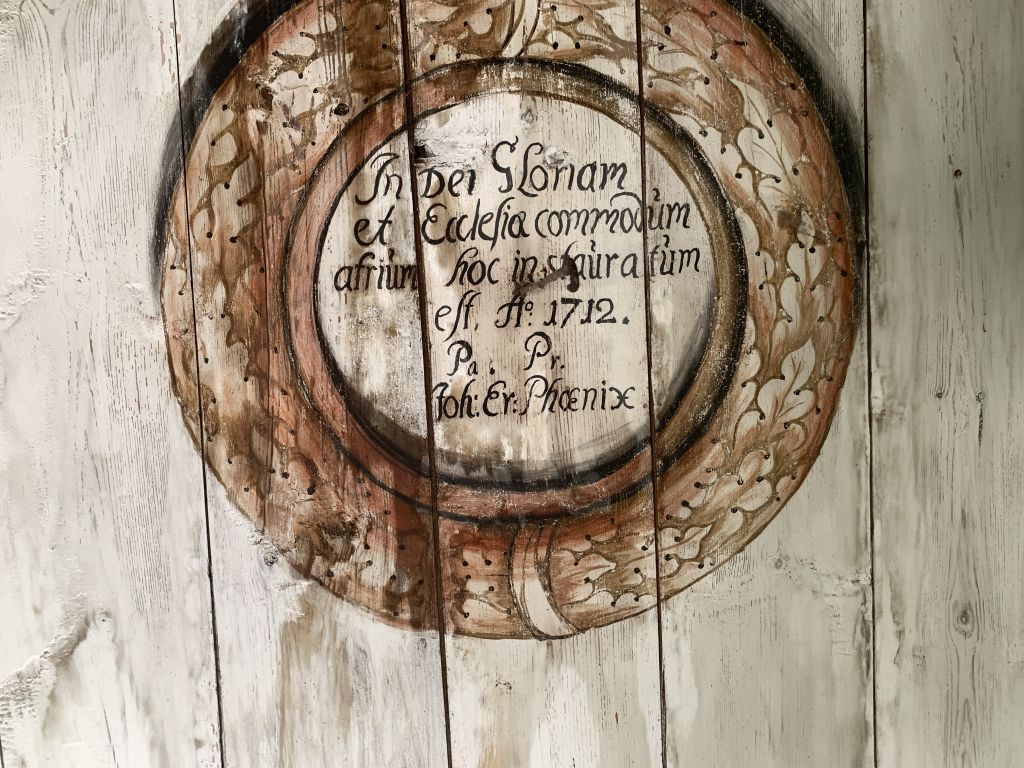 In Dei Gloriam
et Ecclesiæ commodum
atrium hoc instauratum
est. Aº: 1712.
Pa. Pr.
Joh: Er: Phœnix